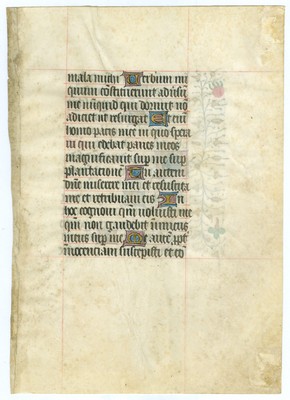 mala michi Verbum ini
quum constituerunt adversū
me nūquid qui dormit nō
adiciet ut resurgat Eteni
homo pacis mee in quo spera
vi qui edebat panes meos
magnificavit sup me sup
plantatione Tu autem
dñe miserere mei et resuscita
me et retribuam eis In
hoc cognovi qm̄ voluisti me
qm̄ non gaudebit inimicus
meus sup me Me autē ppt
innocenciam suscepisti et cō